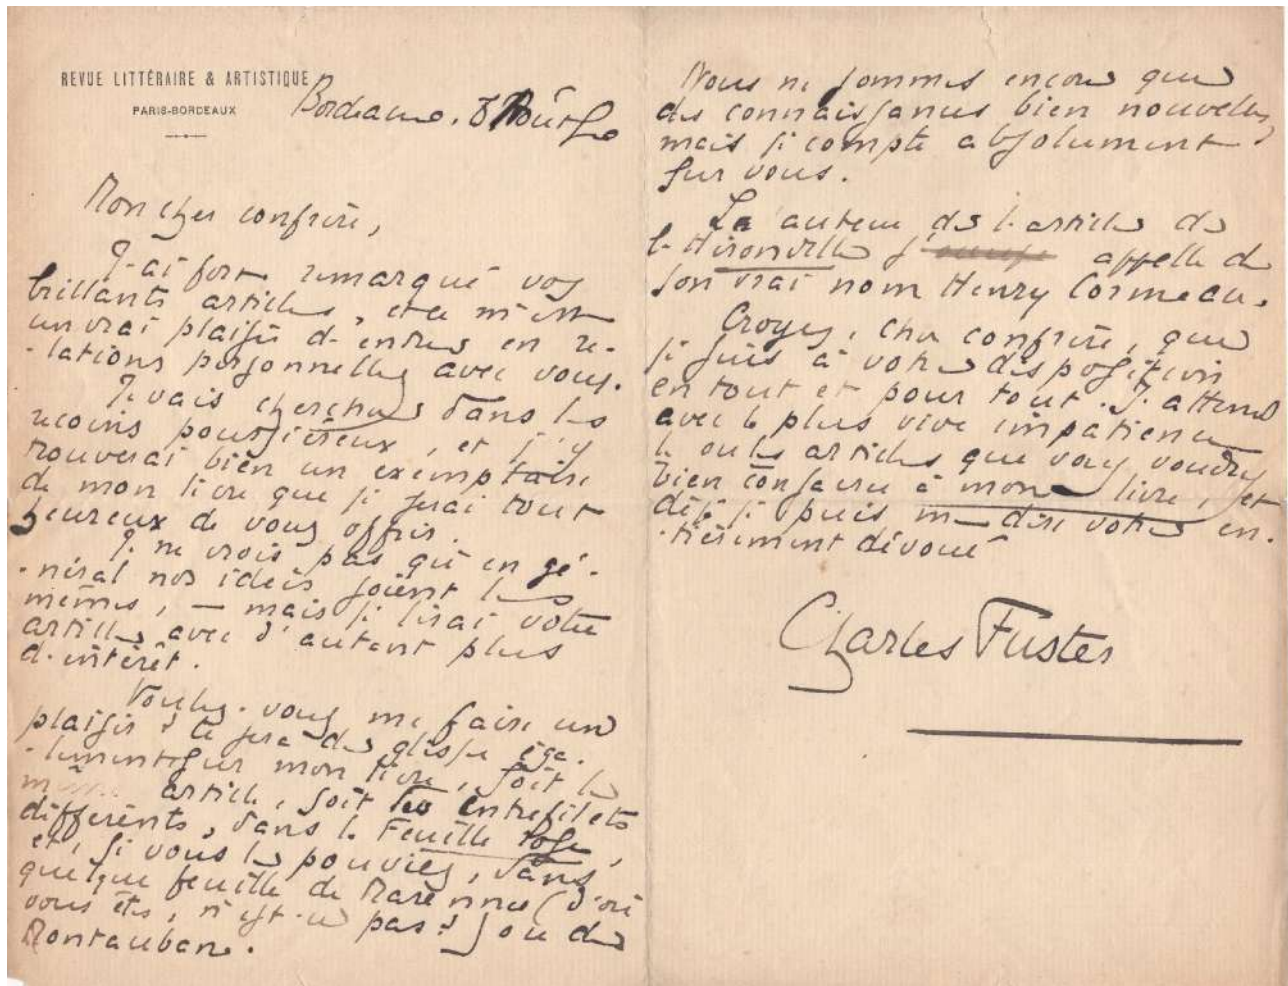 REVUE LITTÉRAIRE & ARTISTIQUE
PARIS-BORDEAUX
Bordeaux, 8 Août
Mon cher confrère,
J'ai fort remarqué vos
brillants articles, et ce m'est
un vrai plaisir d'entrer en re-
-lations personnelles avec vous.
Je vais chercher dans les
recoins poussiéreux, et j'y
trouverai bien un exemplaire
de mon livre que je serai tout
heureux de vous offrir.
Je ne crois pas qu'en gé-
-néral nos idées soient les
mêmes, — mais je lirai votre
article avec d'autant plus
d'intérêt.
Voulez-vous me faire un
plaisir? Ce sera de glisser éga-
-lement sur mon livre, soit le
même article, soit des entrefilets
différents, dans la Feuille rose,
et, si vous le pouviez, dans
quelque feuille de Marennes (d'où
vous êtes, n'est-ce pas?) ou de
Montauban.
Nous ne sommes encore que
des connaissances bien nouvelles,
mais je compte absolument
sur vous.
L'auteur de l'article de
la s' appelle de
son vrai nom Henry Cormeau.
Croyez, cher confrère, que
je suis à votre disposition
en tout et pour tout. J'attends
avec la plus vive impatience
le ou les articles que vous voudrez
bien consacrer à mon livre, et
déjà je puis me dire votre en-
-tièrement dévoué
Charles Fuster